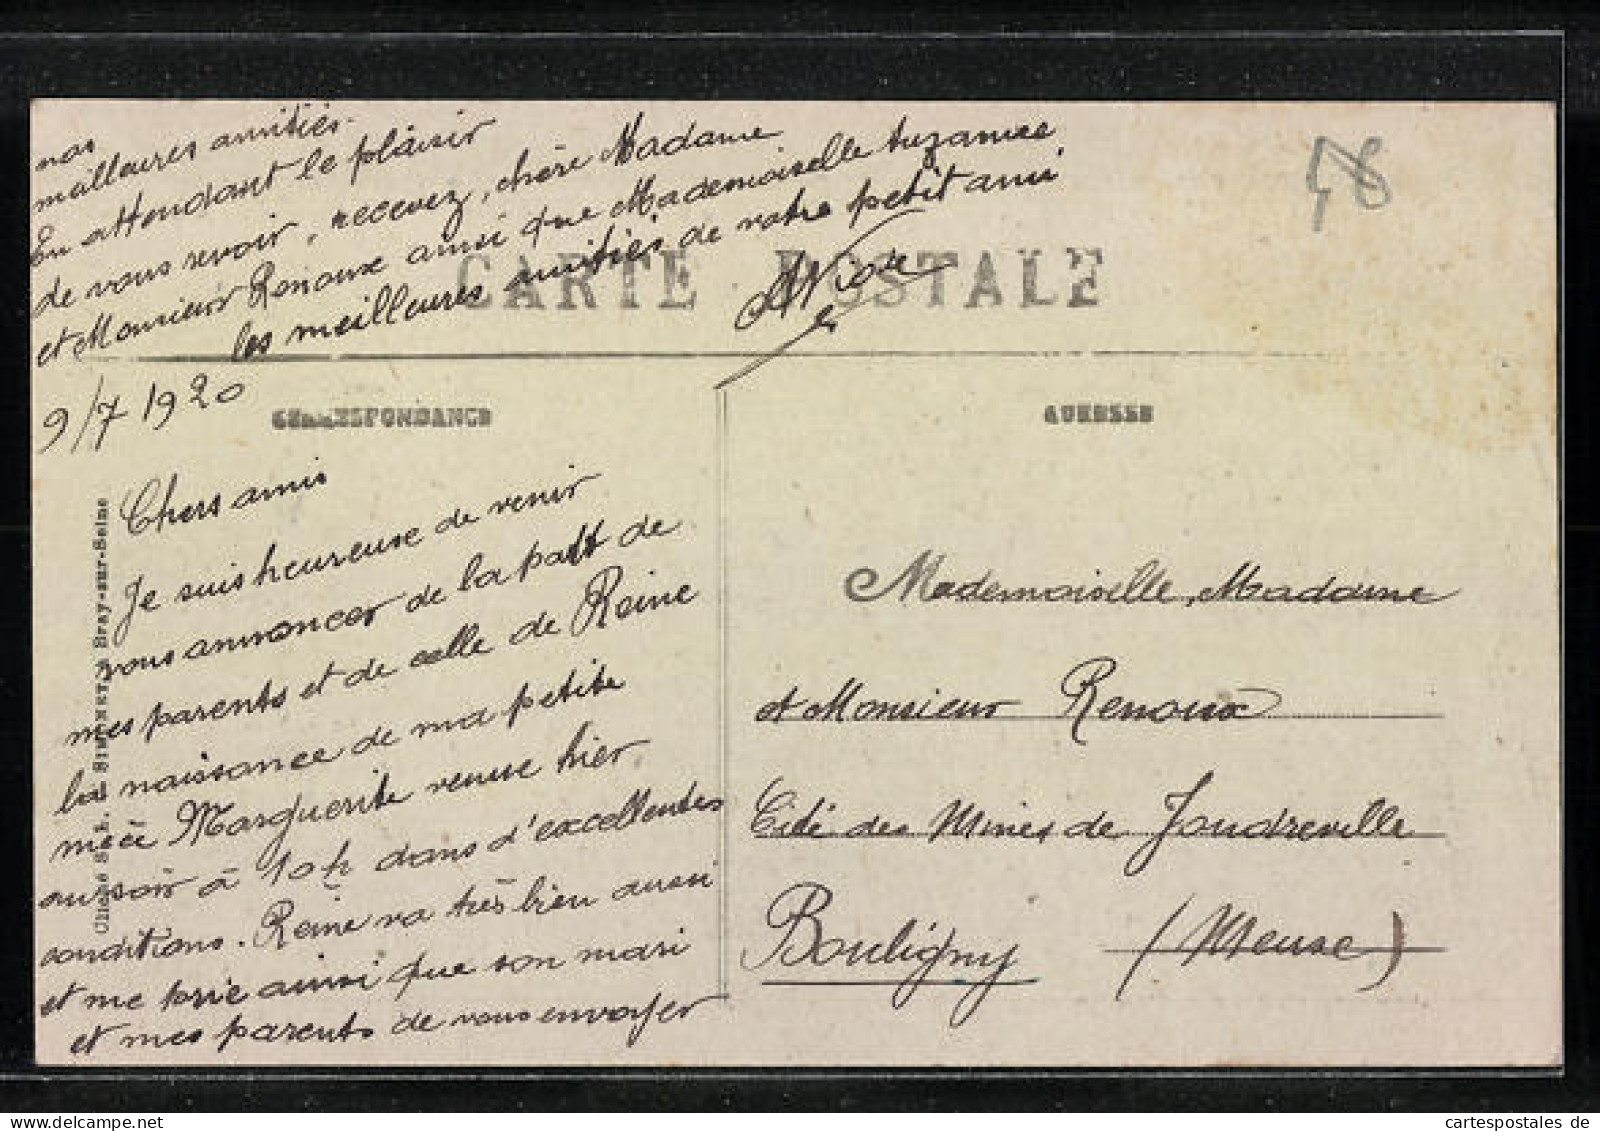 9/7 1920
Chers amis
Je suis heureuse de venir
vous annoncer de la part de
mes parents et de celle de Reine
la naissance de ma petite
nièce Marguerite venue hier
au soir à 10h dans d'excellentes
conditions. Reine va très bien aussi
et me prie ainsi que son mari
et mes parents de vous envoyer
nos
meilleures amitiés.
En attendant le plaisir
de vous revoir, recevez, chère Madame
et Monsieur Renoux ainsi que Mademoiselle Suzanne
les meilleures amitiés de votre petit ami
CARTE POSTALE
CORRESPONDANCE
ADRESSE
Mademoiselle, Madame
et Monsieur Renoux
Cité des Mines de Joudreville
Bouligny (Meuse)
Bray-sur-Seine
58
cartespostales.de